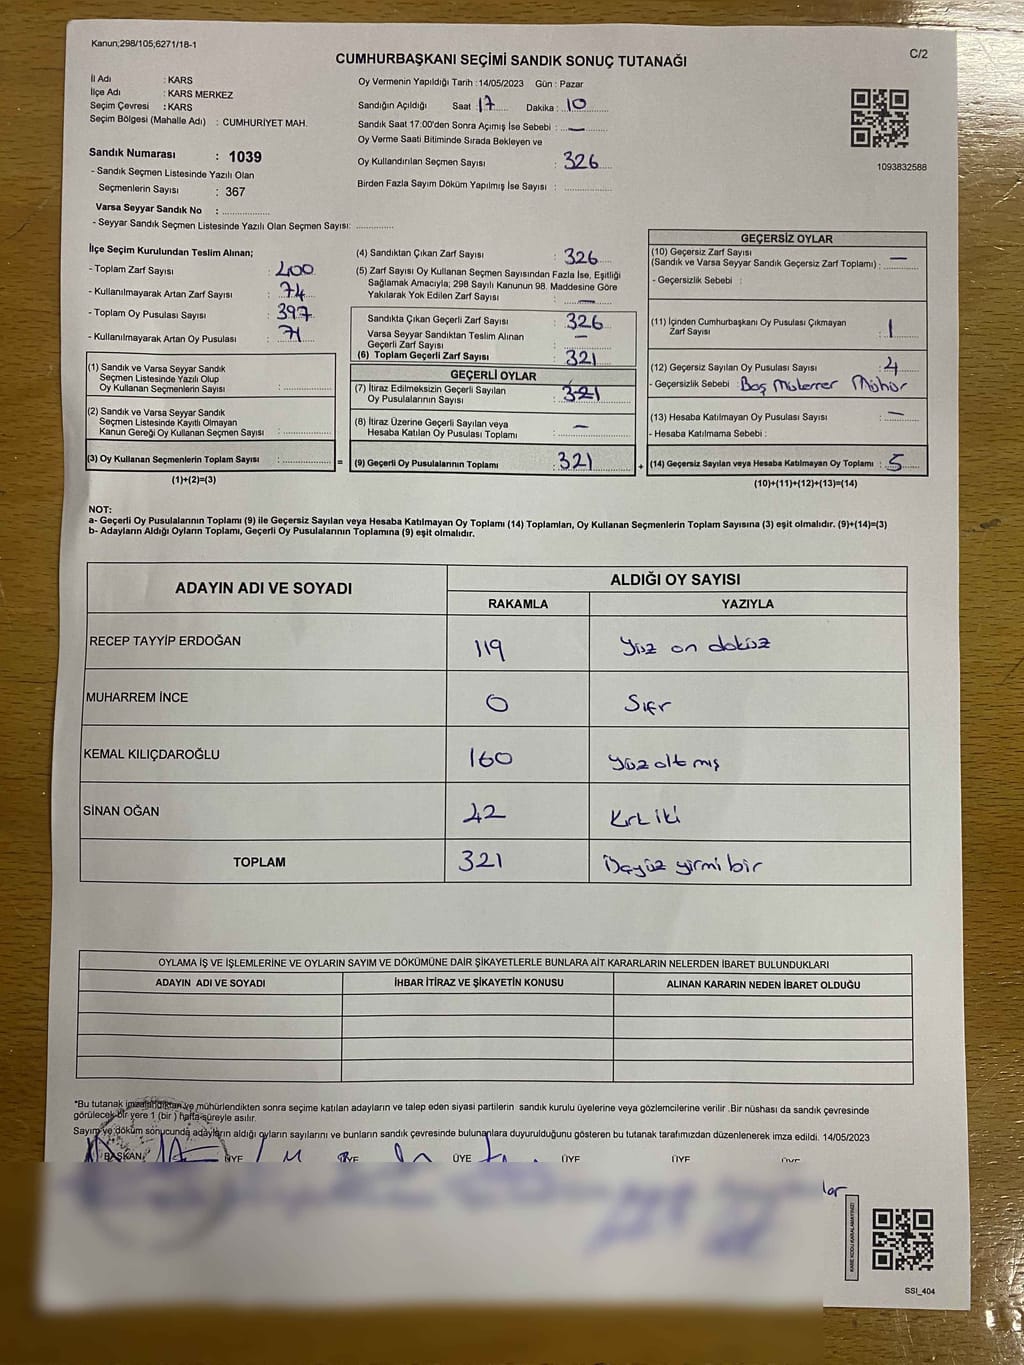 Kanun;298/105;6271/18-1
C/2
CUMHURBAŞKANI SEÇİMİ SANDIK SONUÇ TUTANAĞI
İl Adı : KARS
İlçe Adı : KARS MERKEZ
Seçim Çevresi : KARS
Seçim Bölgesi (Mahalle Adı) : CUMHURİYET MAH.
Sandık Numarası : 1039
- Sandık Seçmen Listesinde Yazılı Olan
Seçmenlerin Sayısı : 367
Varsa Seyyar Sandık No : ..................
- Seyyar Sandık Seçmen Listesinde Yazılı Olan Seçmen Sayısı: .............
Oy Vermenin Yapıldığı Tarih : 14/05/2023 Gün : Pazar
Sandığın Açıldığı Saat 17 Dakika : 10
Sandık Saat 17:00'den Sonra Açımış İse Sebebi : —
Oy Verme Saati Bitiminde Sırada Bekleyen ve
Oy Kullandırılan Seçmen Sayısı : 326
Birden Fazla Sayım Döküm Yapılmış İse Sayısı : ................
1093832588
İlçe Seçim Kurulundan Teslim Alınan;
- Toplam Zarf Sayısı : 400
- Kullanılmayarak Artan Zarf Sayısı : 74
- Toplam Oy Pusulası Sayısı : 397
- Kullanılmayarak Artan Oy Pusulası : 71
(1) Sandık ve Varsa Seyyar Sandık
Seçmen Listesinde Yazılı Olup
Oy Kullanan Seçmenlerin Sayısı : ................
(2) Sandık ve Varsa Seyyar Sandık
Seçmen Listesinde Kayıtlı Olmayan
Kanun Gereği Oy Kullanan Seçmen Sayısı : ................
(3) Oy Kullanan Seçmenlerin Toplam Sayısı : ................
(1)+(2)=(3)
(4) Sandıktan Çıkan Zarf Sayısı : 326
(5) Zarf Sayısı Oy Kullanan Seçmen Sayısından Fazla İse, Eşitliği
Sağlamak Amacıyla; 298 Sayılı Kanunun 98. Maddesine Göre
Yakılarak Yok Edilen Zarf Sayısı : —
Sandıkta Çıkan Geçerli Zarf Sayısı : 326
Varsa Seyyar Sandıktan Teslim Alınan
Geçerli Zarf Sayısı : —
(6) Toplam Geçerli Zarf Sayısı : 321
GEÇERLİ OYLAR
(7) İtiraz Edilmeksizin Geçerli Sayılan
Oy Pusulalarının Sayısı : 321
(8) İtiraz Üzerine Geçerli Sayılan veya
Hesaba Katılan Oy Pusulası Toplamı : —
= (9) Geçerli Oy Pusulalarının Toplamı : 321
GEÇERSİZ OYLAR
(10) Geçersiz Zarf Sayısı
(Sandık ve Varsa Seyyar Sandık Geçersiz Zarf Toplamı) : —
- Geçersizlik Sebebi :
(11) İçinden Cumhurbaşkanı Oy Pusulası Çıkmayan
Zarf Sayısı : 1
(12) Geçersiz Sayılan Oy Pusulası Sayısı : 4
- Geçersizlik Sebebi : Boş Mükerrer Mühür
(13) Hesaba Katılmayan Oy Pusulası Sayısı : —
- Hesaba Katılmama Sebebi :
+ (14) Geçersiz Sayılan veya Hesaba Katılmayan Oy Toplamı : 5
(10)+(11)+(12)+(13)=(14)
NOT:
a- Geçerli Oy Pusulalarının Toplamı (9) ile Geçersiz Sayılan veya Hesaba Katılmayan Oy Toplamı (14) Toplamları, Oy Kullanan Seçmenlerin Toplam Sayısına (3) eşit olmalıdır. (9)+(14)=(3)
b- Adayların Aldığı Oyların Toplamı, Geçerli Oy Pusulalarının Toplamına (9) eşit olmalıdır.
ADAYIN ADI VE SOYADI
ALDIĞI OY SAYISI
RAKAMLA YAZIYLA
RECEP TAYYİP ERDOĞAN 119 Yüz on dokuz
MUHARREM İNCE 0 Sıfır
KEMAL KILIÇDAROĞLU 160 Yüz altmış
SİNAN OĞAN 42 Kırk iki
TOPLAM 321 Üçyüz yirmi bir
OYLAMA İŞ VE İŞLEMLERİNE VE OYLARIN SAYIM VE DÖKÜMÜNE DAİR ŞİKAYETLERLE BUNLARA AİT KARARLARIN NELERDEN İBARET BULUNDUKLARI
ADAYIN ADI VE SOYADI İHBAR İTİRAZ VE ŞİKAYETİN KONUSU ALINAN KARARIN NEDEN İBARET OLDUĞU
*Bu tutanak imzalandıktan ve mühürlendikten sonra seçime katılan adayların ve talep eden siyasi partilerin sandık kurulu üyelerine veya gözlemcilerine verilir .Bir nüshası da sandık çevresinde
görülecek bir yere 1 (bir ) hafta süreyle asılır.
Sayım ve döküm sonucunda adayların aldığı oyların sayılarını ve bunların sandık çevresinde bulunanlara duyurulduğunu gösteren bu tutanak tarafımızdan düzenlenerek imza edildi. 14/05/2023
BAŞKAN ÜYE ÜYE ÜYE ÜYE ÜYE ÜYE
KARE KODU KARALAMAYINIZ!
SSI_404